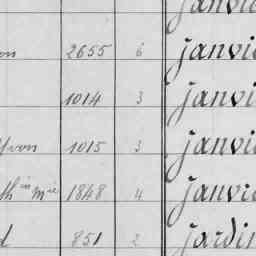 janvie
on 2655 6 janvie
1014 3 janvi
Yvon 1015 3 janvie
th in Mie 1848 4 janvie
d 851 2 jardin